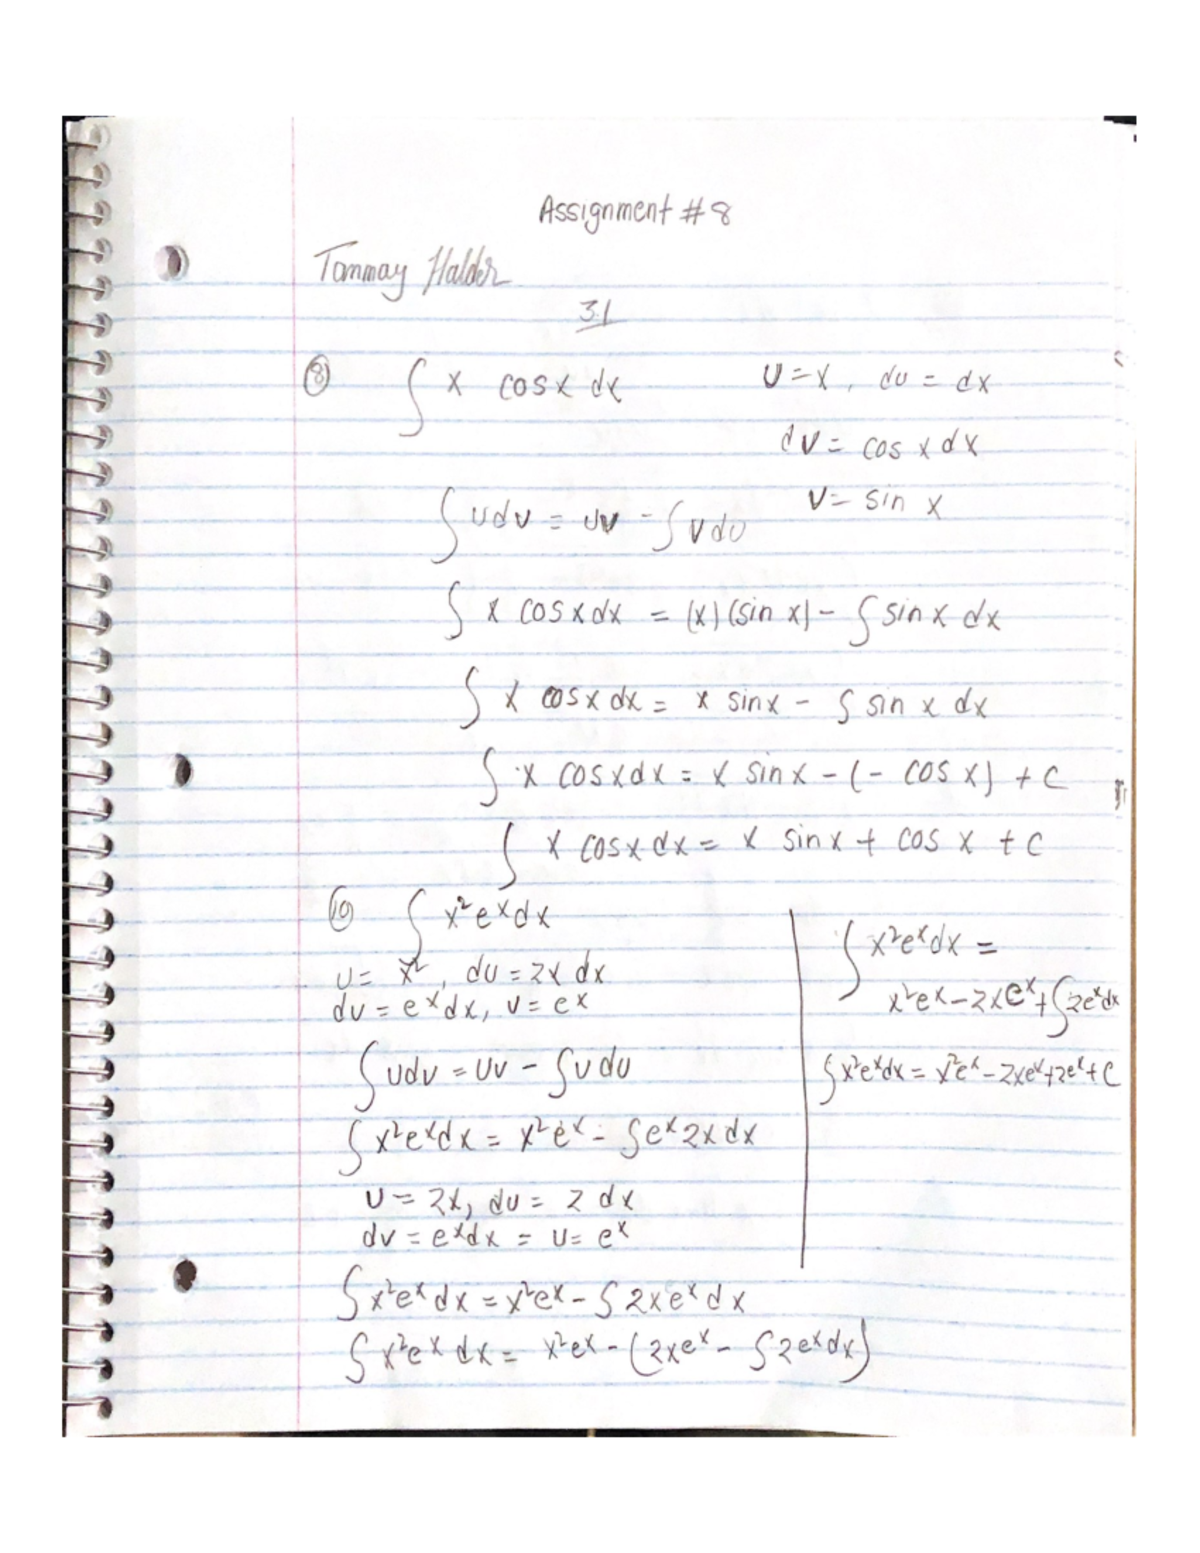 Assignment #8
Tanmay Halder
3.1
⑧ ∫ x cosx dx u=x, du = dx
dv = cos x dx
v = sin x
∫ udv = uv - ∫ vdu
∫ x cosxdx = (x)(sin x) - ∫ sin x dx
∫ x cosx dx = x sinx - ∫ sin x dx
∫ x cosxdx = x sinx - (- cos x) + c
∫ x cosx dx = x sinx + cos x + c
⑩ ∫ x²eˣdx
u = x², du = 2x dx
dv = eˣdx, v = eˣ
∫udv = uv - ∫vdu
∫x²eˣdx = x²eˣ - ∫eˣ2xdx
u = 2x, du = 2 dx
dv = eˣdx = u= eˣ
∫x²eˣdx = x²eˣ - ∫2xeˣdx
∫x²eˣdx = x²eˣ - (2xeˣ - ∫2eˣdx)
∫x²eˣdx =
x²eˣ - 2xeˣ + ∫2eˣdx
∫x²eˣdx = x²eˣ - 2xeˣ + 2eˣ + C